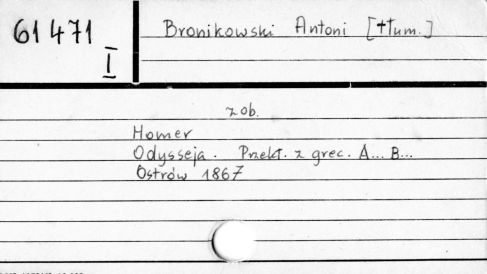 61471
I
Bronikowski Antoni [+tłum.]
zob.
Homer
Odysseja. Przekł. z grec. A... B...
Ostrów 1867